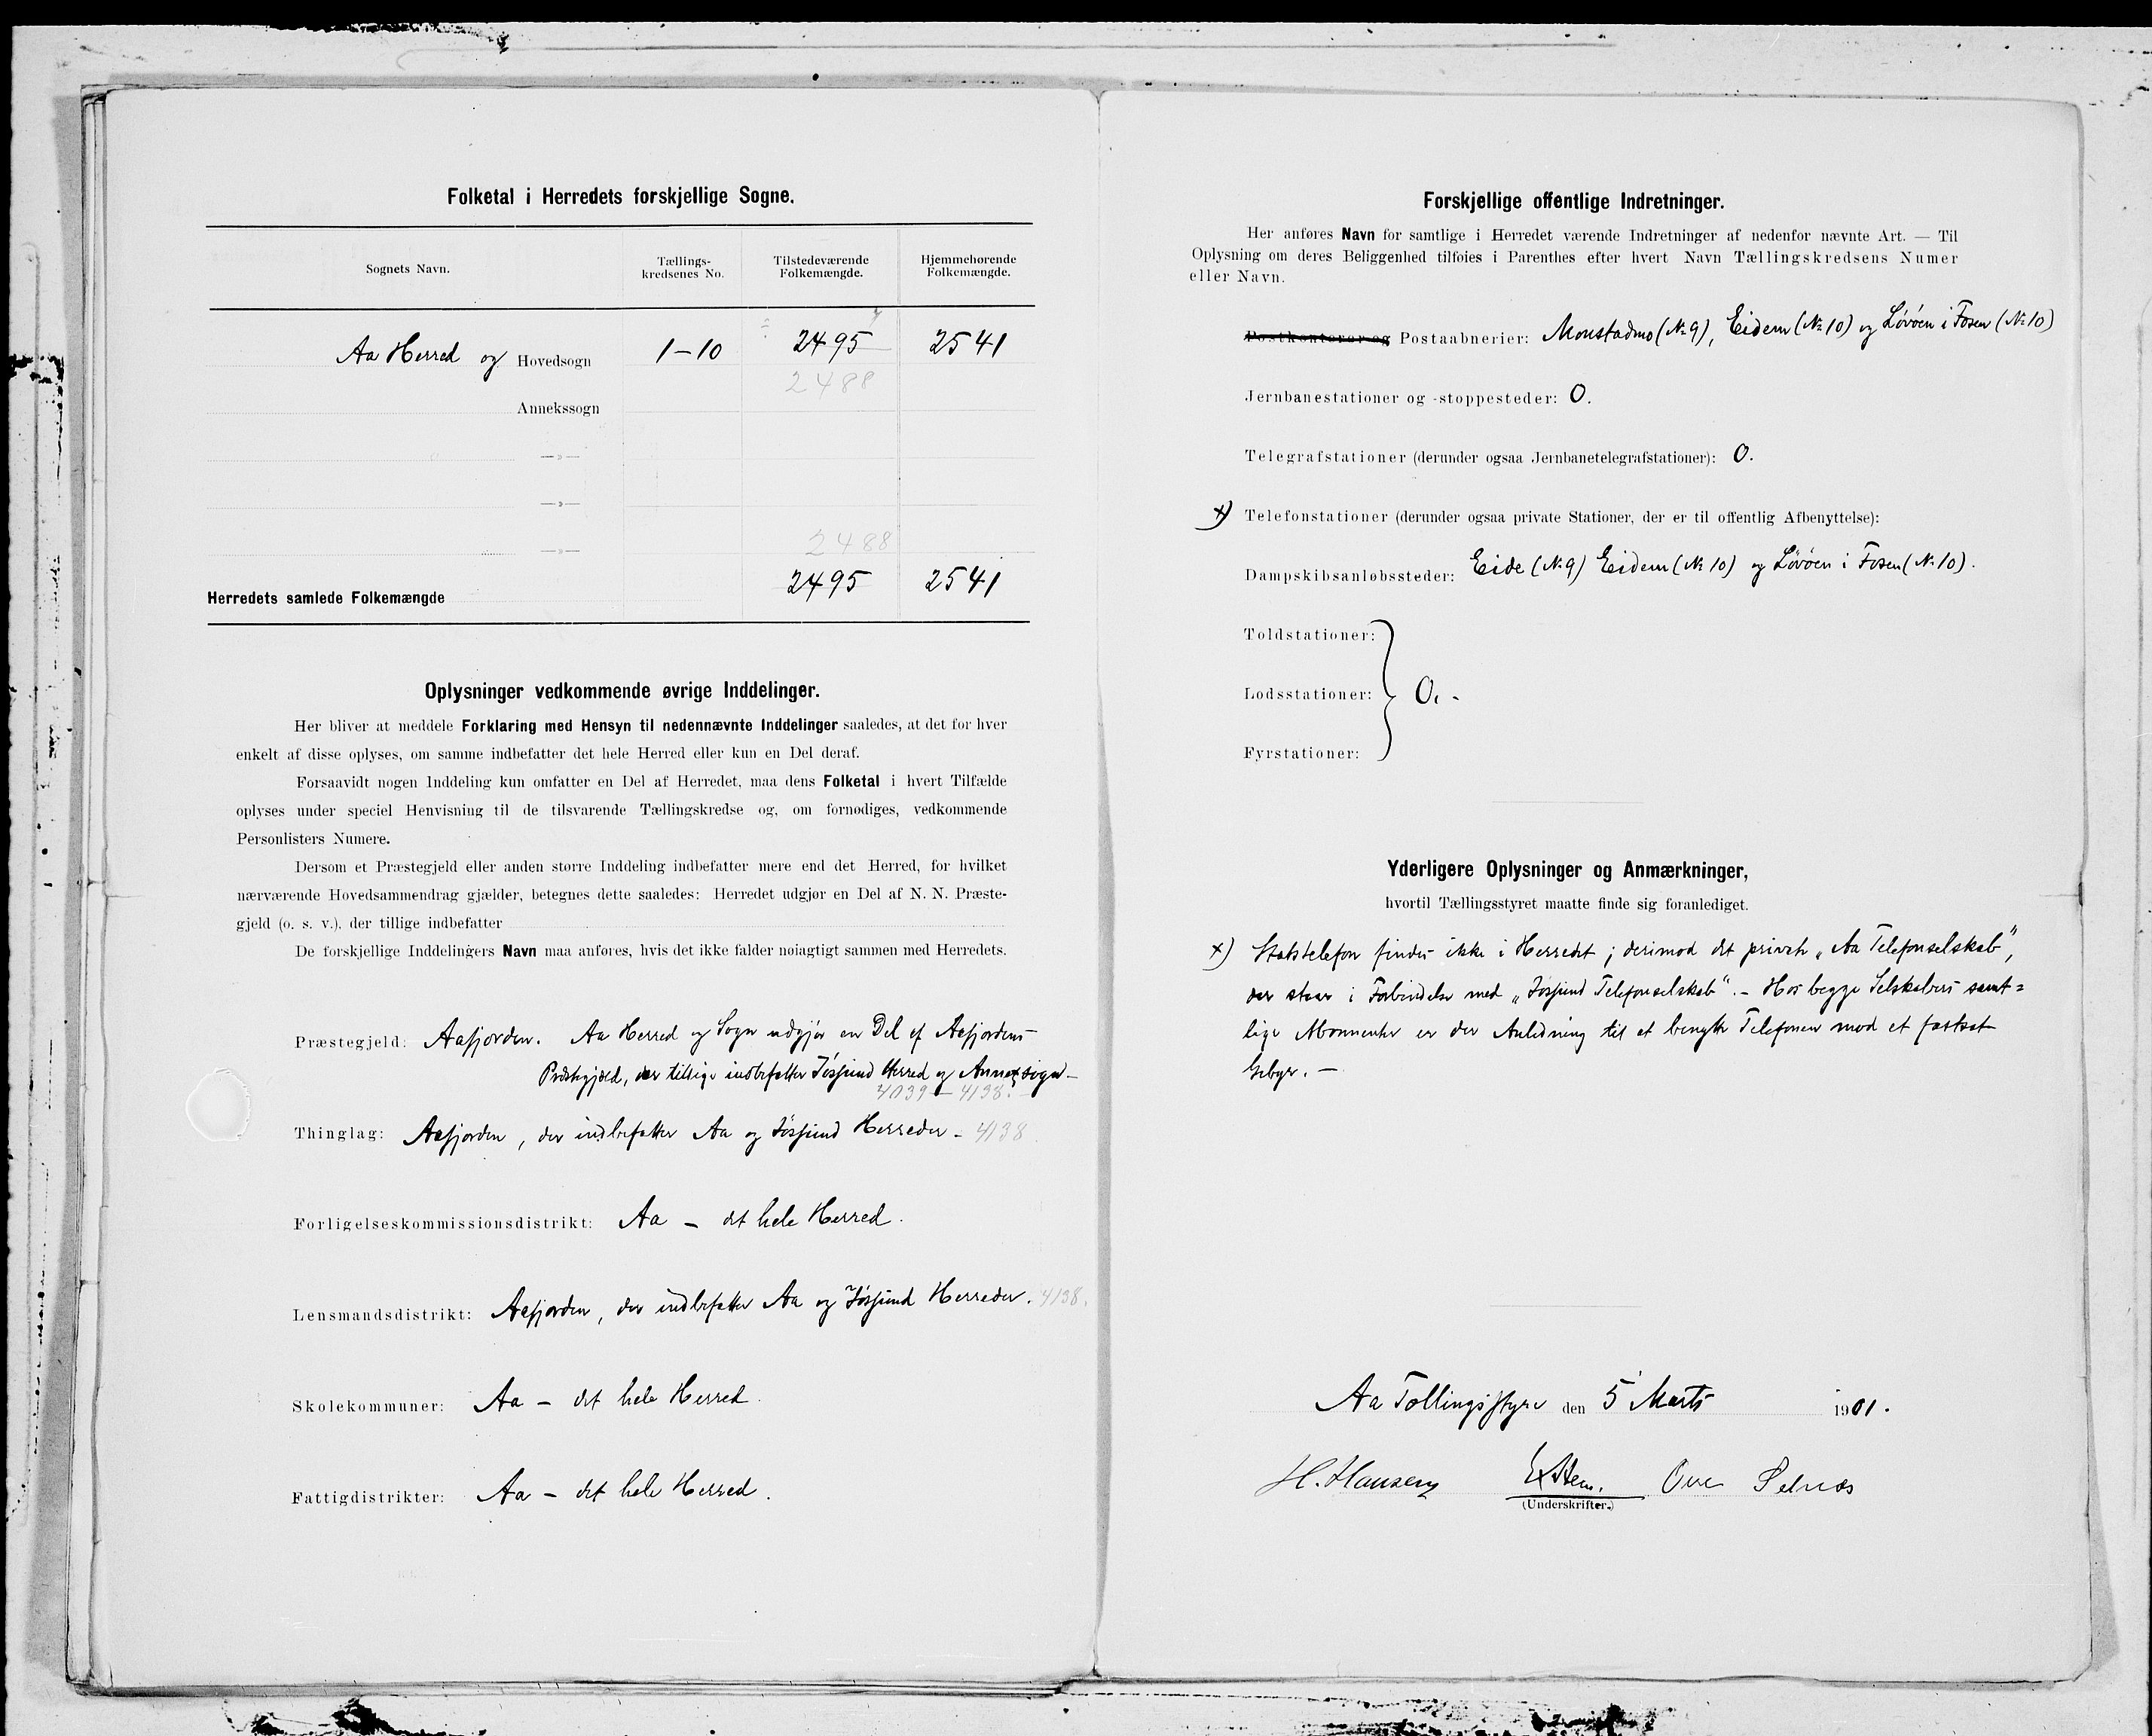 Folketal i Herredets forskjellige Sogne.
Sognets Navn.
Tællings-
kredsenes No.
Tilstedeværende
Folkemængde.
Hjemmehørende
Folkemængde.
Aa Herred og Hovedsogn 1-10 2495 2541
2488
Annekssogn
—»—
—»—
—»—
2488
Herredets samlede Folkemængde 2495 2541
Oplysninger vedkommende øvrige Inddelinger.
Her bliver at meddele Forklaring med Hensyn til nedennævnte Inddelinger saaledes, at det for hver
enkelt af disse oplyses, om samme indbefatter det hele Herred eller kun en Del deraf.
Forsaavidt nogen Inddeling kun omfatter en Del af Herredet, maa dens Folketal i hvert Tilfælde
oplyses under speciel Henvisning til de tilsvarende Tællingskredse og, om fornødiges, vedkommende
Personlisters Numere.
Dersom et Præstegjeld eller anden større Inddeling indbefatter mere end det Herred, for hvilket
nærværende Hovedsammendrag gjælder, betegnes dette saaledes: Herredet udgjør en Del af N. N. Præste-
gjeld (o. s. v.), der tillige indbefatter
De forskjellige Inddelingers Navn maa anføres, hvis det ikke falder nøiagtigt sammen med Herredets.
Præstegjeld: Aafjorden. Aa Herred og Sogn udgjør en Del af Aafjordens
Præstegjæld, der tillige indbefatter Jøssund Herred og Annexsogn -
4039 - 4138.
Thinglag: Aafjorden, der indbefatter Aa og Jøssund Herreder - 4138
Forligelseskommissionsdistrikt: Aa - det hele Herred.
Lensmandsdistrikt: Aafjorden, der indbefatter Aa og Jøssund Herreder. 4138.
Skolekommuner: Aa - det hele Herred.
Fattigdistrikter: Aa - det hele Herred.
Forskjellige offentlige Indretninger.
Her anføres Navn for samtlige i Herredet værende Indretninger af nedenfor nævnte Art. — Til
Oplysning om deres Beliggenhed tilføies i Parenthes efter hvert Navn Tællingskredsens Numer
eller Navn.
Postkontorer og Postaabnerier: Monstadmo (No 9), Eidem (No 10) og Løvøen i Fosen (No 10)
Jernbanestationer og -stoppesteder: 0.
Telegrafstationer (derunder ogsaa Jernbanetelegrafstationer): 0.
x) Telefonstationer (derunder ogsaa private Stationer, der er til offentlig Afbenyttelse):
Dampskibsanløbssteder: Eide (No 9) Eidem (No 10) og Løvøen i Fosen (No 10).
Toldstationer:
Lodsstationer: 0. -
Fyrstationer:
Yderligere Oplysninger og Anmærkninger,
hvortil Tællingsstyret maatte finde sig foranlediget.
x) Statstelefon findes ikke i Herredet; derimod det private „Aa Telefonselskab",
der staar i Forbindelse med „Jøssund Telefonselskab". - Hos begge Selskabers samt=
lige Abonnenter er der Anledning til at benytte Telefonen mod et fastsat
Gebyr. -
Aa Tællingsstyre den 5 Marts 1901.
H. Hansen Ove
(Underskrifter.)